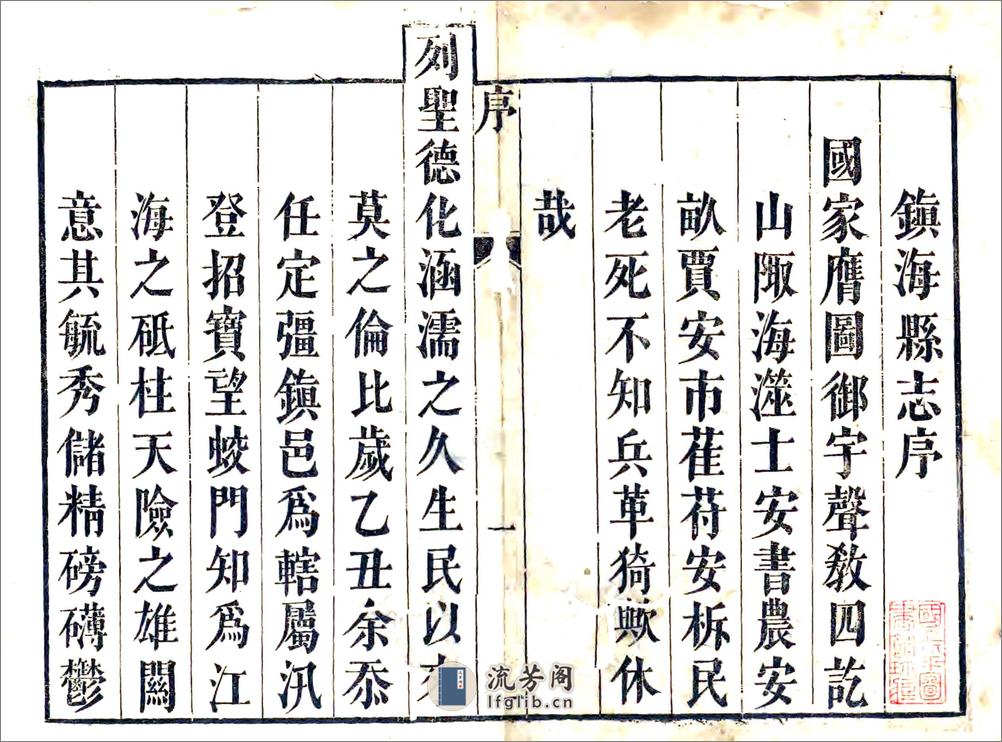 鎭海縣志序
國家膺圖御宇聲敎四訖
山陬海澨士安書農安
畝賈安市萑苻安柝民
老死不知兵革猗歟休
哉
序
一
列聖德化涵濡之久生民以來
莫之倫比歲乙丑余忝
任定彊鎭邑爲轄屬汛
登招寶望蛟門知爲江
海之砥柱天險之雄關
意其毓秀儲精磅礴鬱
流芳阁
lfglib.cn